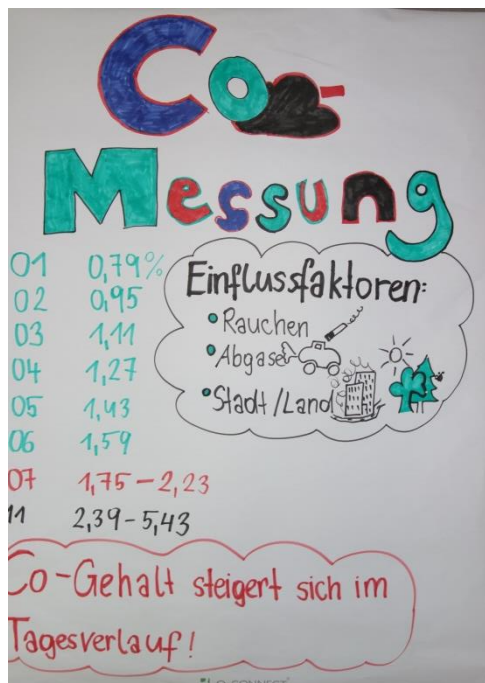 Co-
Messung
01 0,79%
02 0,95
03 1,11
04 1,27
05 1,43
06 1,59
07 1,75 – 2,23
11 2,39 – 5,43
Einflussfaktoren:
• Rauchen
• Abgase
• Stadt / Land
Co-Gehalt steigert sich im
Tagesverlauf!